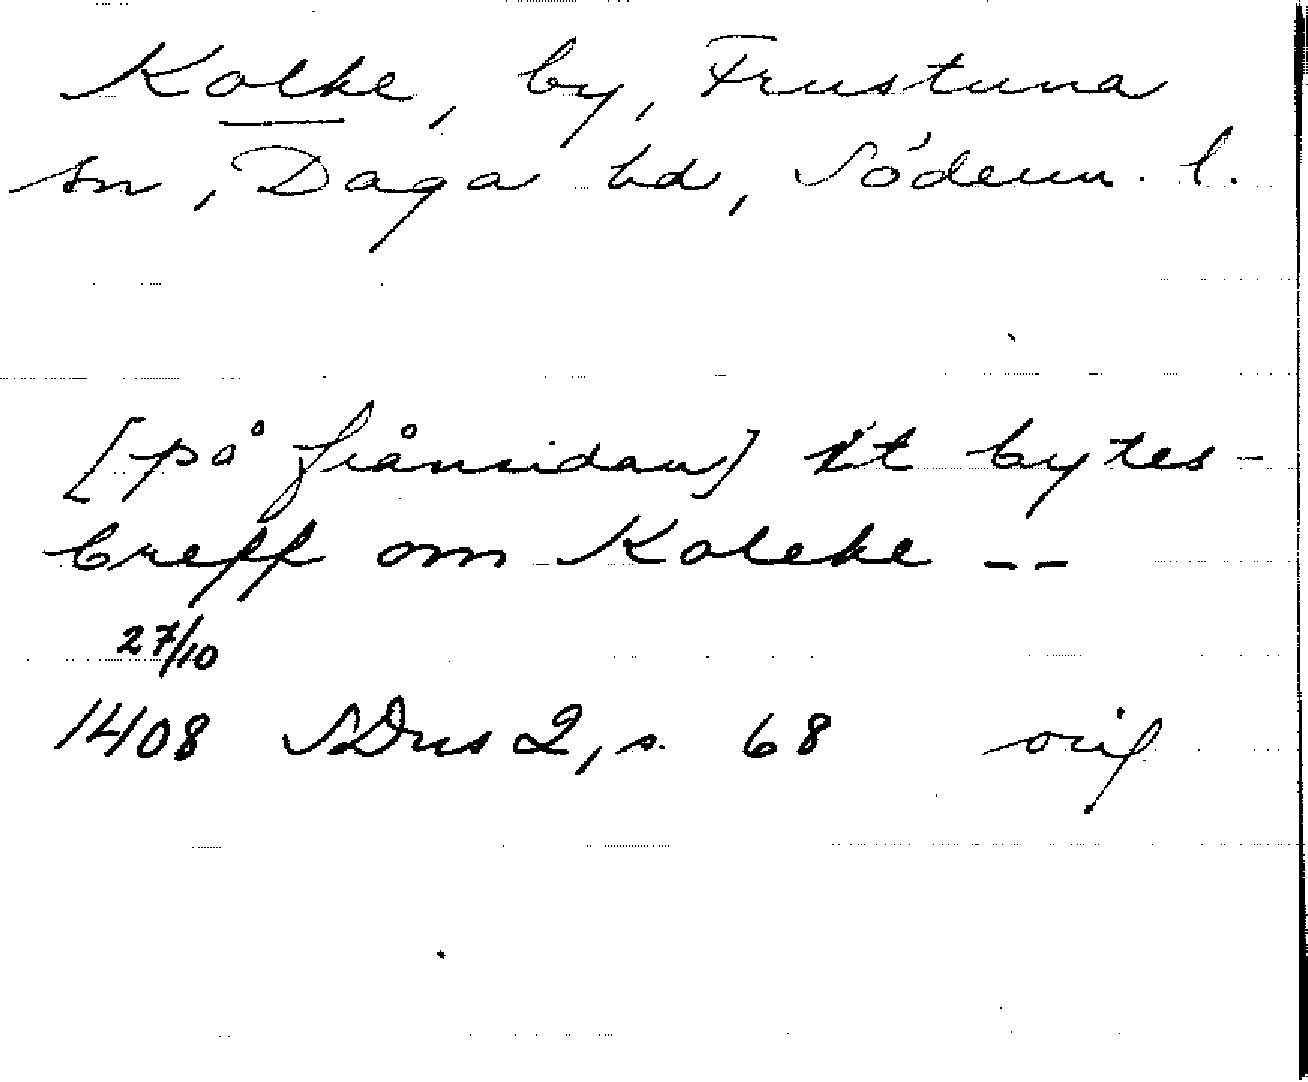 Kolke, by, Frustuna
sn, Daga hd, Söderm. l.
[på frånsidan] it bytes-
breff om Kolcke --
27/10
1408 SDns 2, s. 68 orig